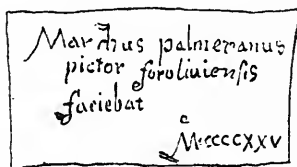 Marchus palmezanus
pictor foroliuiensis
faciebat
c
M·ccccxxv